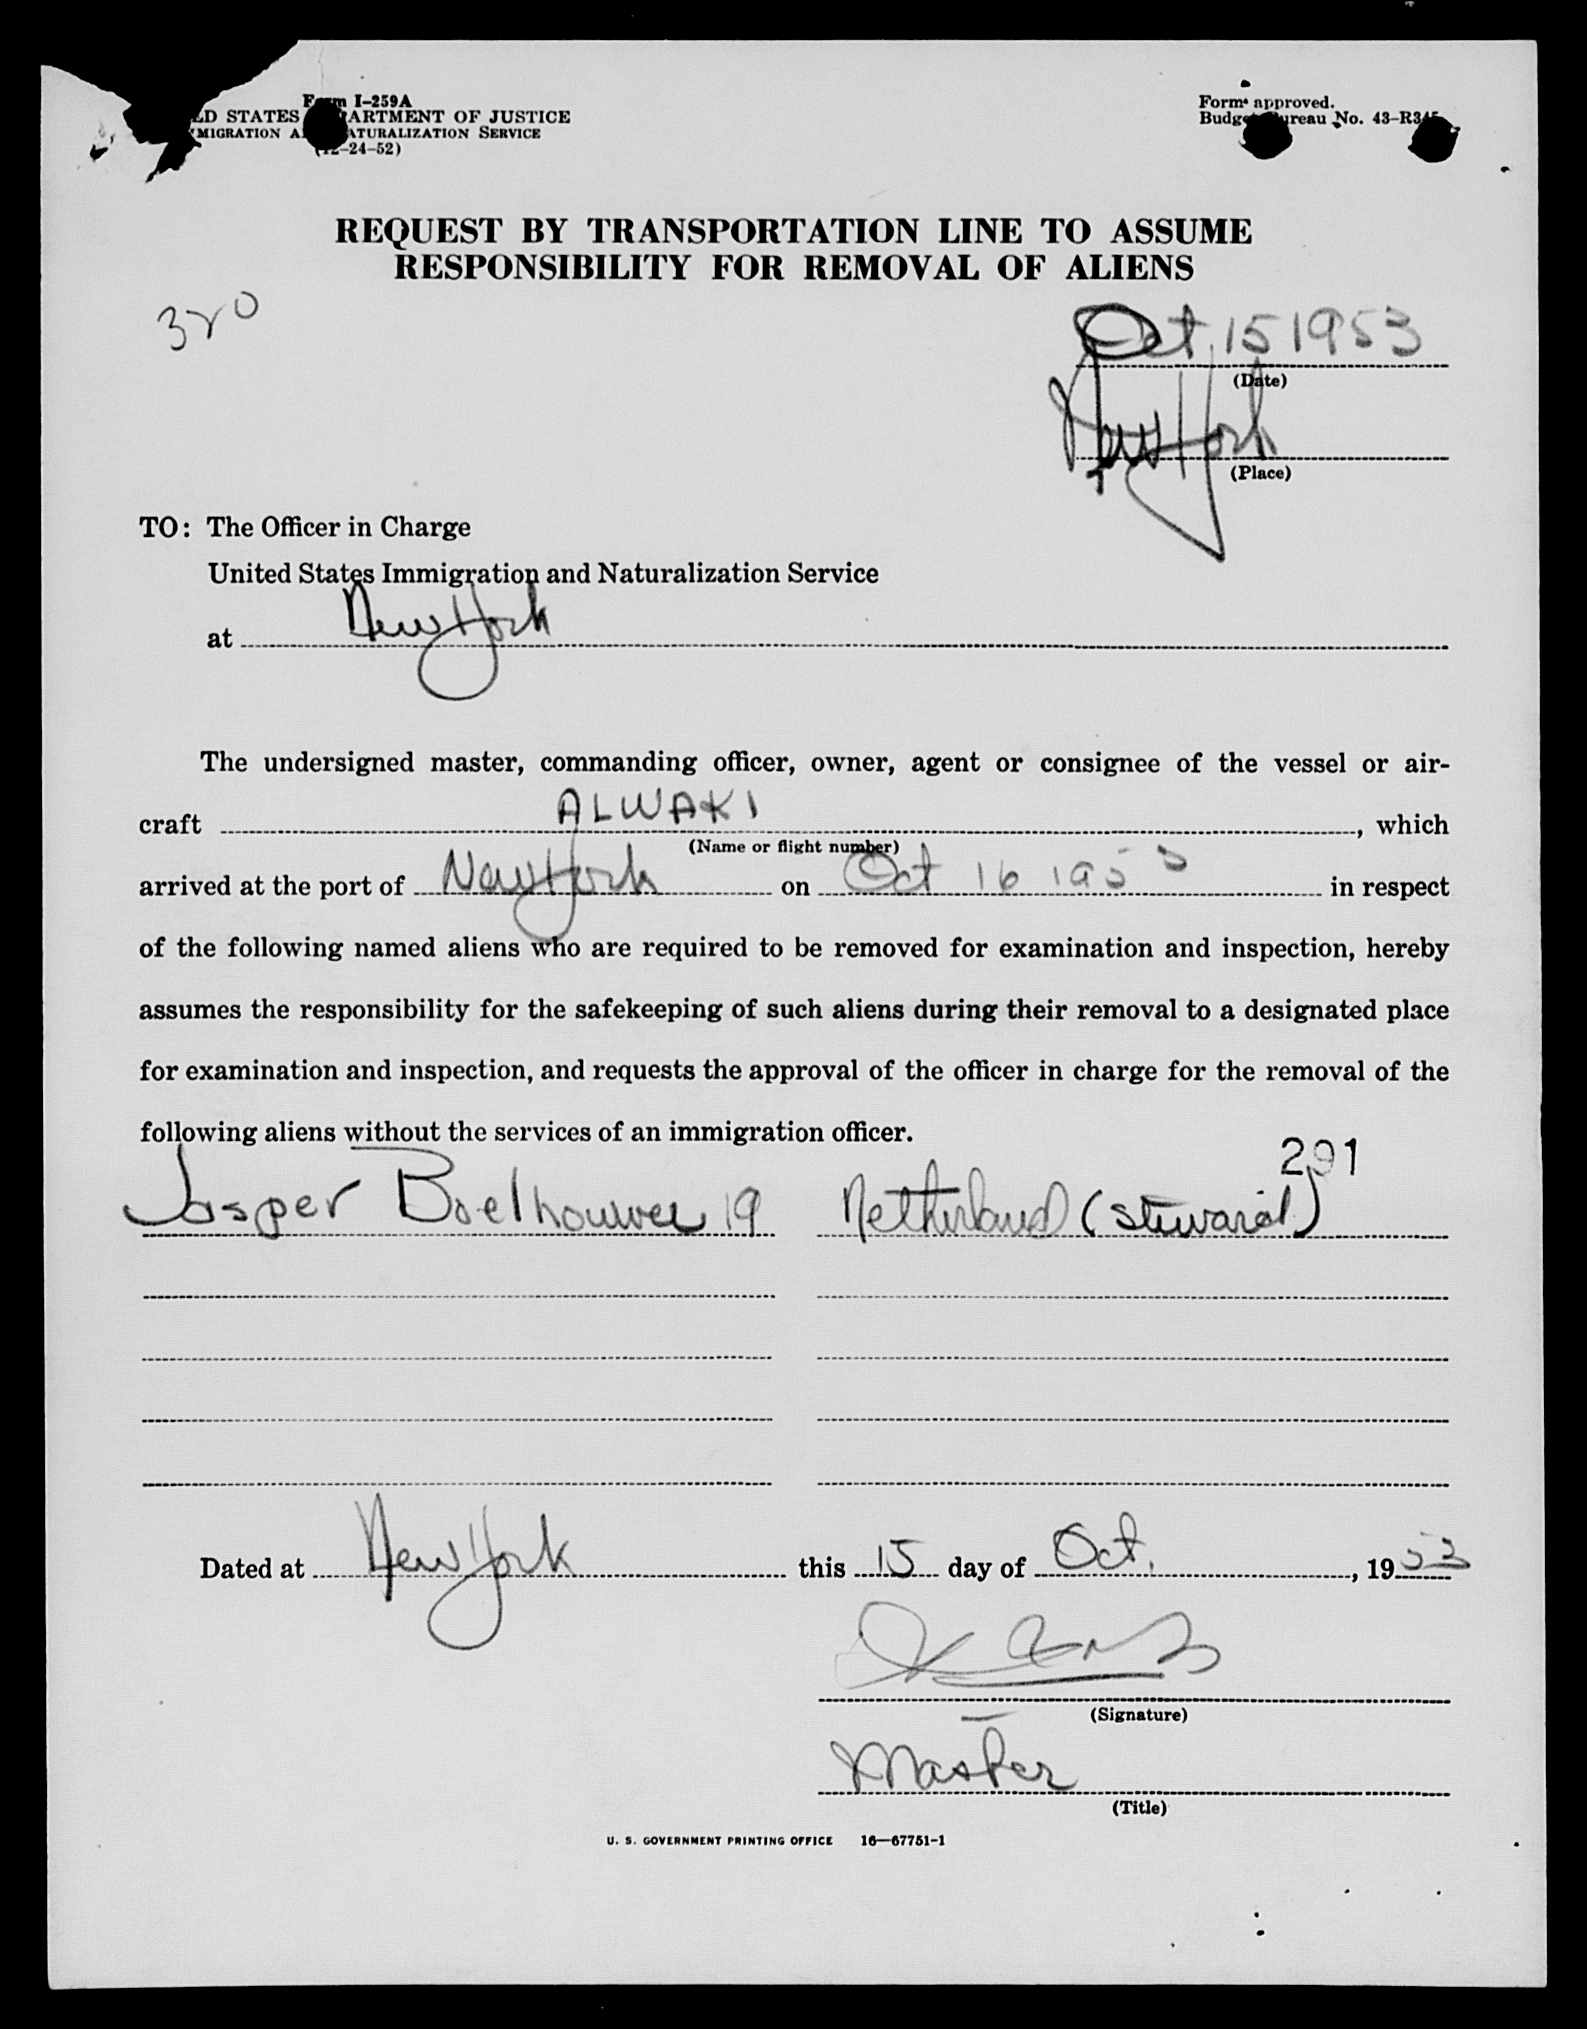 Form I-259A
UNITED STATES DEPARTMENT OF JUSTICE
IMMIGRATION AND NATURALIZATION SERVICE
(12-24-52)
Form approved.
Budget Bureau No. 43-R345
REQUEST BY TRANSPORTATION LINE TO ASSUME
RESPONSIBILITY FOR REMOVAL OF ALIENS
320
Oct. 15 1953
(Date)
New York
(Place)
TO: The Officer in Charge
United States Immigration and Naturalization Service
at New York
The undersigned master, commanding officer, owner, agent or consignee of the vessel or air-
craft ALWAKI, which
(Name or flight number)
arrived at the port of New York on Oct 16 1953 in respect
of the following named aliens who are required to be removed for examination and inspection, hereby
assumes the responsibility for the safekeeping of such aliens during their removal to a designated place
for examination and inspection, and requests the approval of the officer in charge for the removal of the
following aliens without the services of an immigration officer.
291
Jasper Boelhouwer 19 Netherland (steward)
Dated at New York this 15 day of Oct., 1953
(Signature)
Master
(Title)
U. S. GOVERNMENT PRINTING OFFICE 16—67751-1